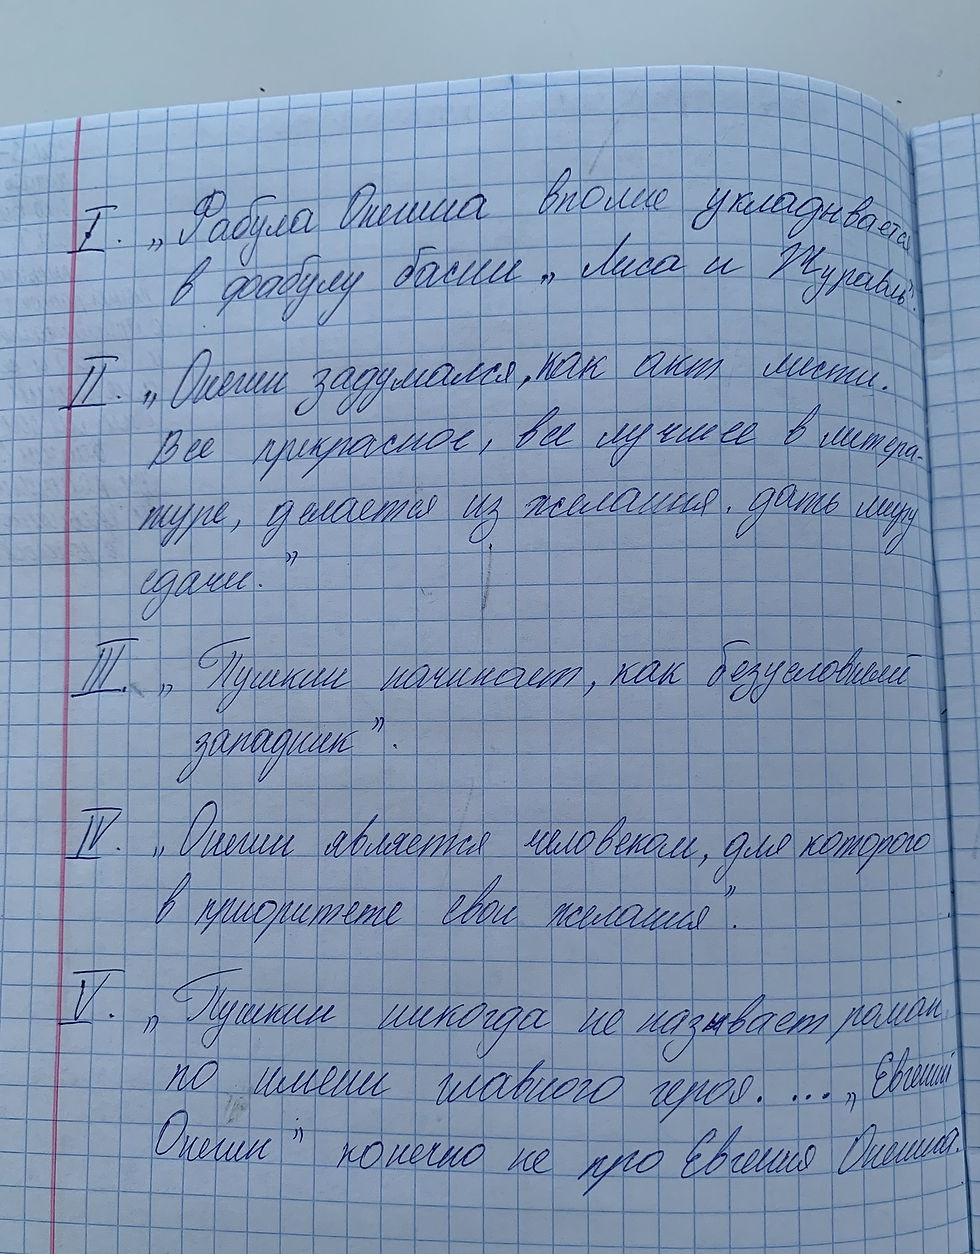 I. „Фабула Онегина вполне укладывается
в фабулу басни „Лиса и Журавль".
II. „Онегин задумался, как акт мести.
Все прекрасное, все лучшее в литера-
туре, делается из желания дать миру
сдачи."
III. „Пушкин начинает, как безусловный
западник".
IV. „Онегин является человеком, для которого
в приоритете свои желания".
V. „Пушкин никогда не называет роман
по имени главного героя. ... „Евгений
Онегин" конечно не про Евгения Онегина.